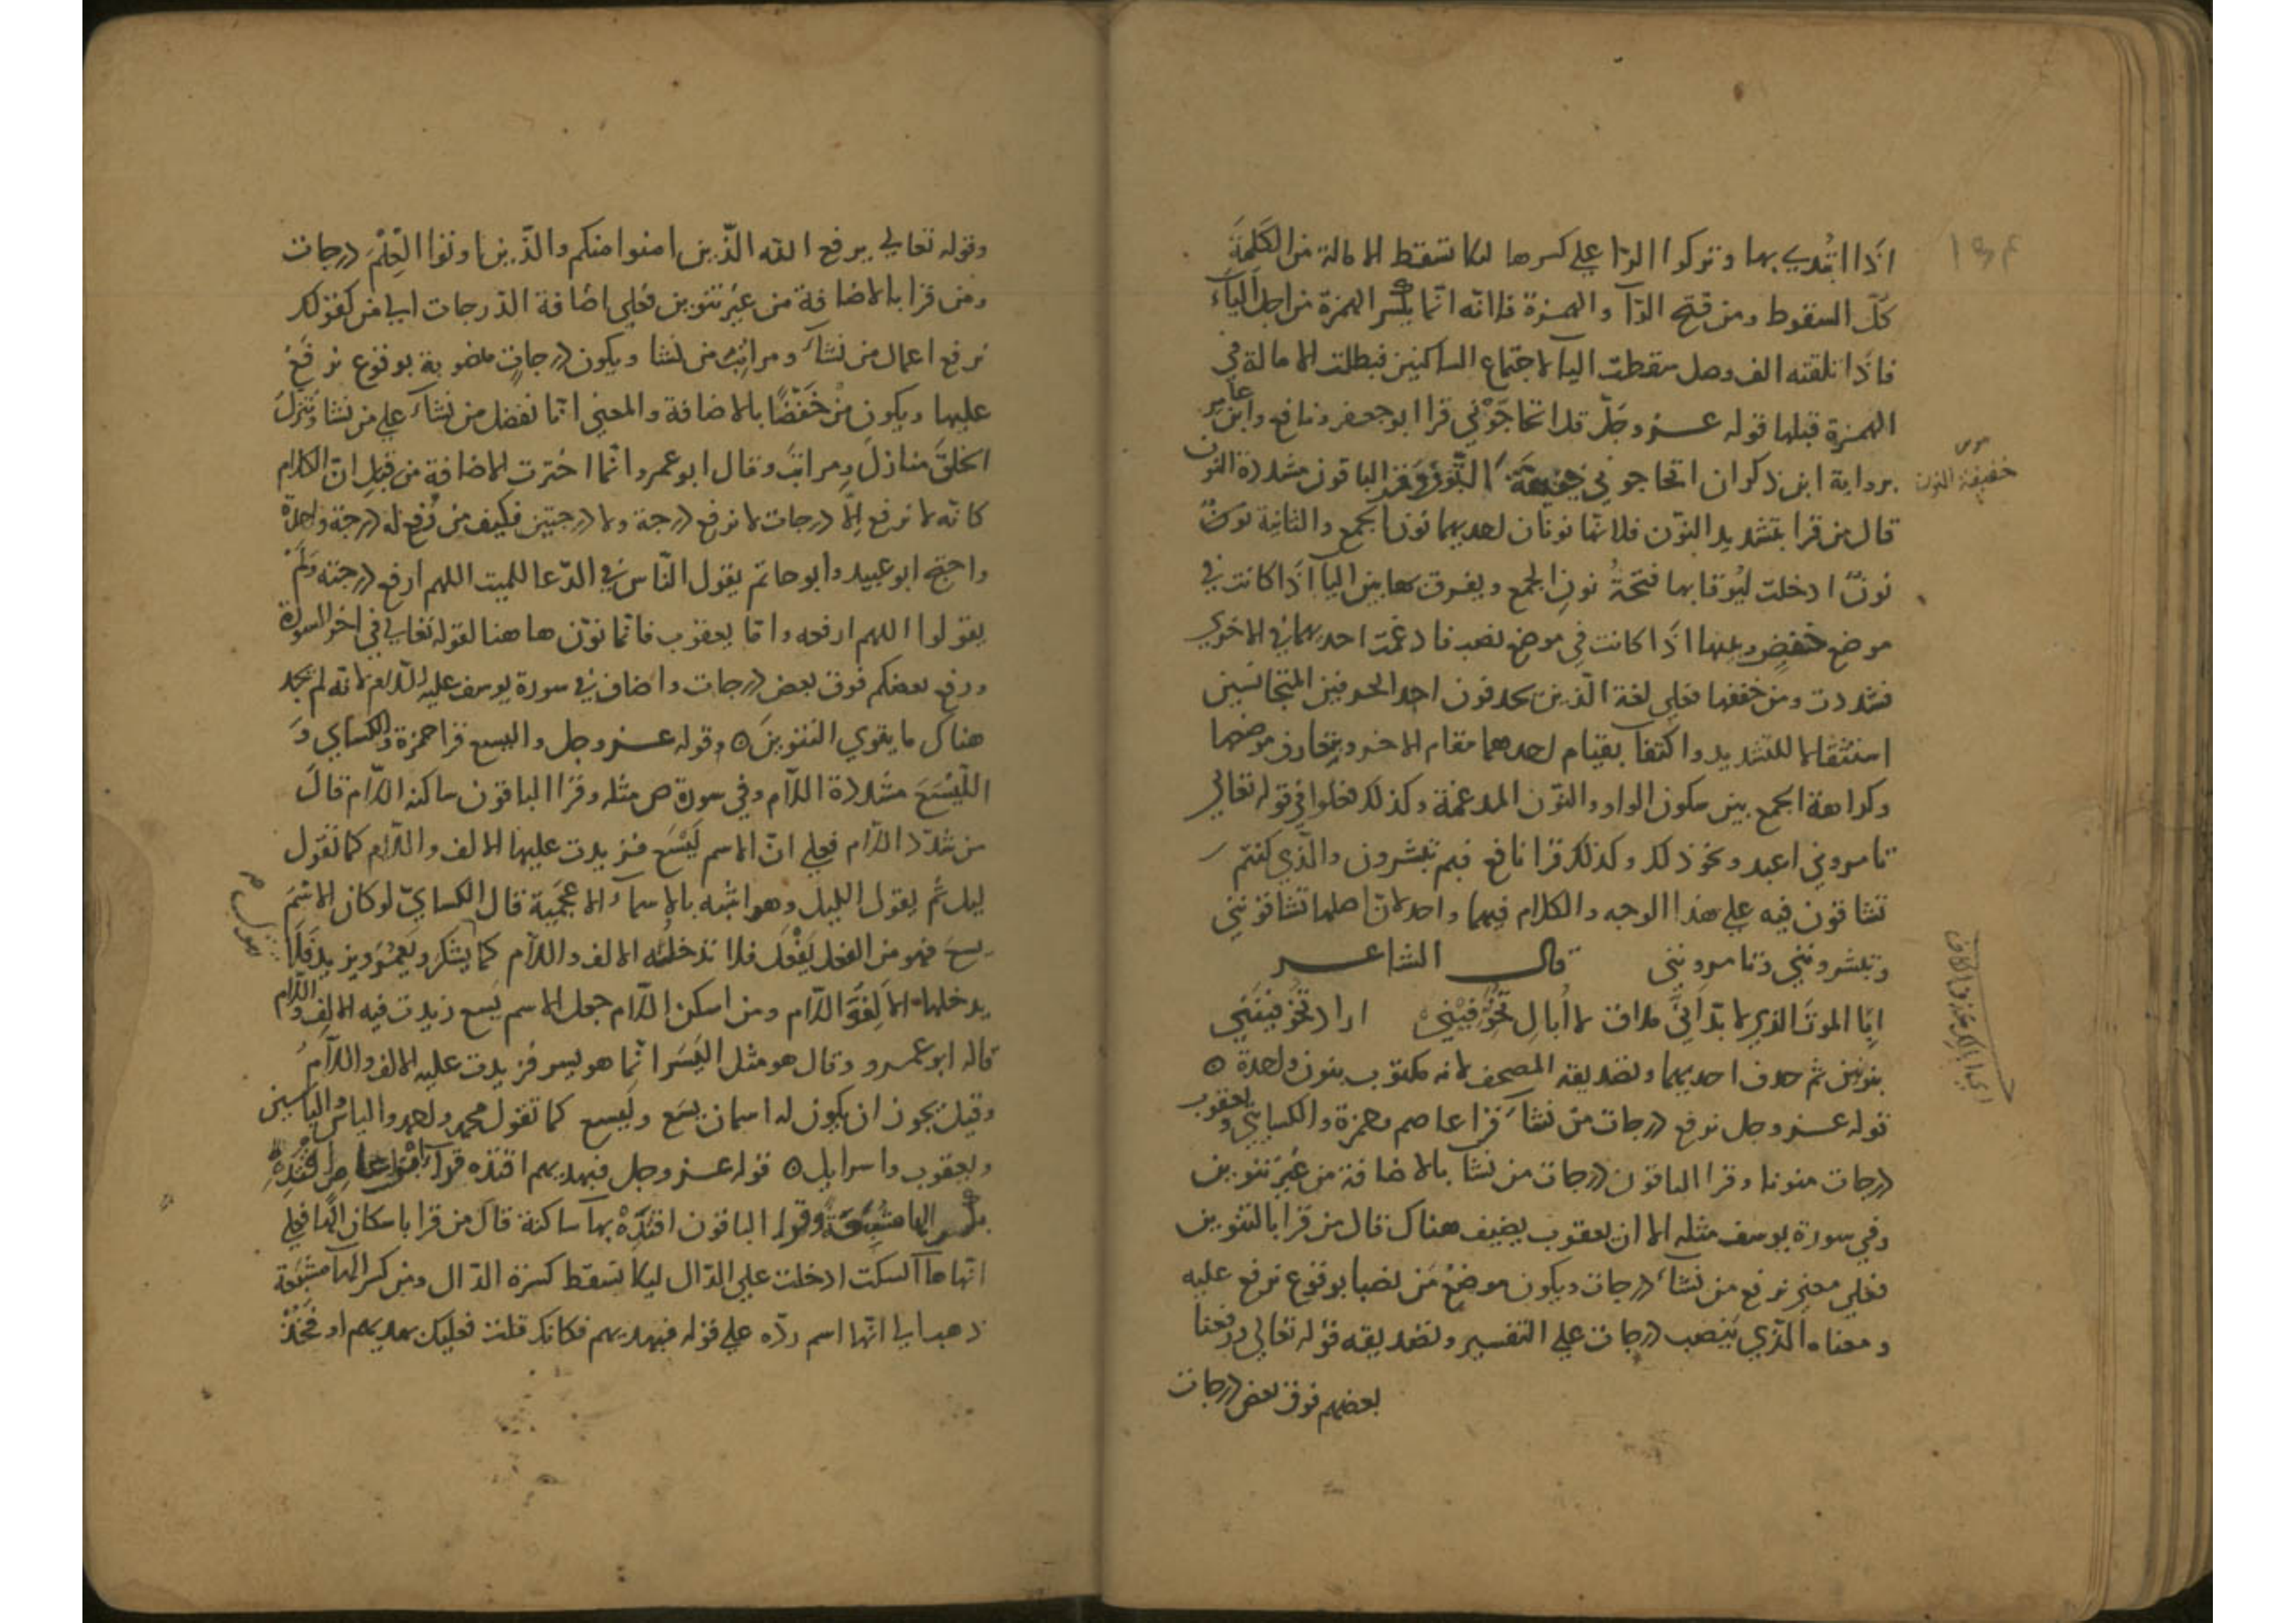 اذا ابتدي بها وتركوا الرا علي كسرها ليلا تسقط الامالة من الكلمة
كلّ السقوط ومن فتح الرآ والهمزة فلانّه انّما يكسر الهمزة من اجل اليآء
فاذا تلقته الف وصل سقطت اليآ لاجتماع الساكنين فبطلت الامالة في
الهمزة قبلها قوله عز وجلّ قل اتحاجّوني قرا ابو جعفر ونافع وابن عامر
برواية ابن ذكوان اتحاجوني خفيفة النّون الباقون مشددة النون
خفيفة النون
قال من قرا بتشديد النوّن فلانّها نونان احديهما نون الجمع والثانية نون
نونٌ ادخلت ليُوقا بها فتحةُ نونِ الجمع ويفرق بها بين اليآ اذا كانت في
موضع خفضٍ وبينها اذا كانت في موضع نصب فادغمت احديهما في الاخري
فشددت ومن خففها فعلي لغة الّذين يحذفون احد الحرفين المتجانسين
استثقالا للتشديد واكتفآ بقيام احدهما مقام الاخر موضعهما
وكراهة الجمع بين سكون الواو والنوّن المدغمة وكذلك فعلوا في قوله تعالي
تامروني اعبد ونحو ذلك وكذلك قرا نافع فبم تبشرون والّذي كنتم
تشاقون فيه علي هذا الوجه والكلام فيهما واحد لانّ اصلها تشاقونني
وتبشرونني وتامرونني قال الشاعر
ابا الموت الذي لا بدّ انّي ملاقٍ لا اُبالِ تُخَوّفيْني اراد تخوفينَني
بنونين ثم حذف احديهما وتصديقه المصحف لانه مكتوب بنون واحدة ه
قوله عز وجل نرفع درجات من نشآء قرا عاصم وحمزة والكسايي ويعقوب
درجات منونا وقرا الباقون درجات من نشا بالاضافة من غير تنوين
وفي سورة يوسف مثله الا ان يعقوب يضيف هناك قال من قرا بالتنوين
فعلي معني نرفع من نشآء درجات ويكون موضعُ مَن نصبا بوقوع نرفع عليه
ومعناه الّذي ينصب درجات علي التفسير وتصديقه قوله تعالي ورفعنا
بعضهم فوق بعض درجات
وقوله تعالي يرفع الله الّذين امنوا منكم والّذين اوتوا الْعِلْمَ درجات
ومن قرا بالاضافة من غير تنوين فعلي اضافة الدرجات الي من كقولك
نرفع اعمال من نشآء ومراتبَ من نشا ويكون درجات منصوبة بوقوع نرفع
عليها ويكون من خَفْضًا بالاضافة والمعني انّا نفضل من نشآء علي من نشا وننزل
الخلقَ منازلَ ومراتبَ وقال ابو عمرو انّما اخترت الاضافة من قبل انّ الكلام
كانّه لا نرفع الّا درجات لا نرفع درجة ولا درجتين فكيف من رُفع له درجة واحدة
واحتج ابو عبيد وابو حاتم يقول النّاس في الدّعا للميت اللهم ارفع درجته ولم
يقولوا اللهم ارفعه وامّا يعقوب فانّما نوّن هاهنا لقوله تعالي في اخر السورة
ورفع بعضكم فوق بعض درجات واضاف في سورة يوسف عليه السّلام لانه لم يجد
هناك ما يقوي التنوين ه وقوله عز وجل واليسع قرا حمزة والكسايي وَ
اللّيْسَعَ مشددة اللّام وفي سورة ص مثله وقرا الباقون ساكنة اللّام قال
من شدّد اللّام فعلي انّ الاسم لَيْسَع فزيدت عليها الالف واللّام كما تقول
ليل ثم يقول الليل وهو اشبه بالاسمآء الاعجمية قال الكسايي لو كان الاسمَ
يسع فهو من الفعل يَفْعَل فلا تدخله الالف واللّام كما يشكر ويعمر ويزيد فلا
يدخلها الالف واللّام ومن اسكن اللّام جعل الاسم يسع زيدت فيه الالف واللّام
قاله ابو عمرو وقال هو مثل اليَسَر انّما هو يسر فزيدت عليه الالف واللّام
وقيل يجوز ان يكون له اسمان يسع وليسع كما تقول محمد واحمد والياس والياسين
ويعقوب واسرايل ه قوله عز وجل فبهديهم اقتده قرا ابن عامر اقتدهِ
بكسر الها مشبعة وقرا الباقون اقتدهْ بهآ ساكنة قال من قرا باسكان الها فعلي
انّها هآ السكت ادخلت علي الدّال ليلا تسقط كسرة الدّال ومن كسر الهآ مشبعة
ذهب الي انّها اسم ردّه علي قوله فبهديهم فكانك قلت فعليك بهديهم او فخذ